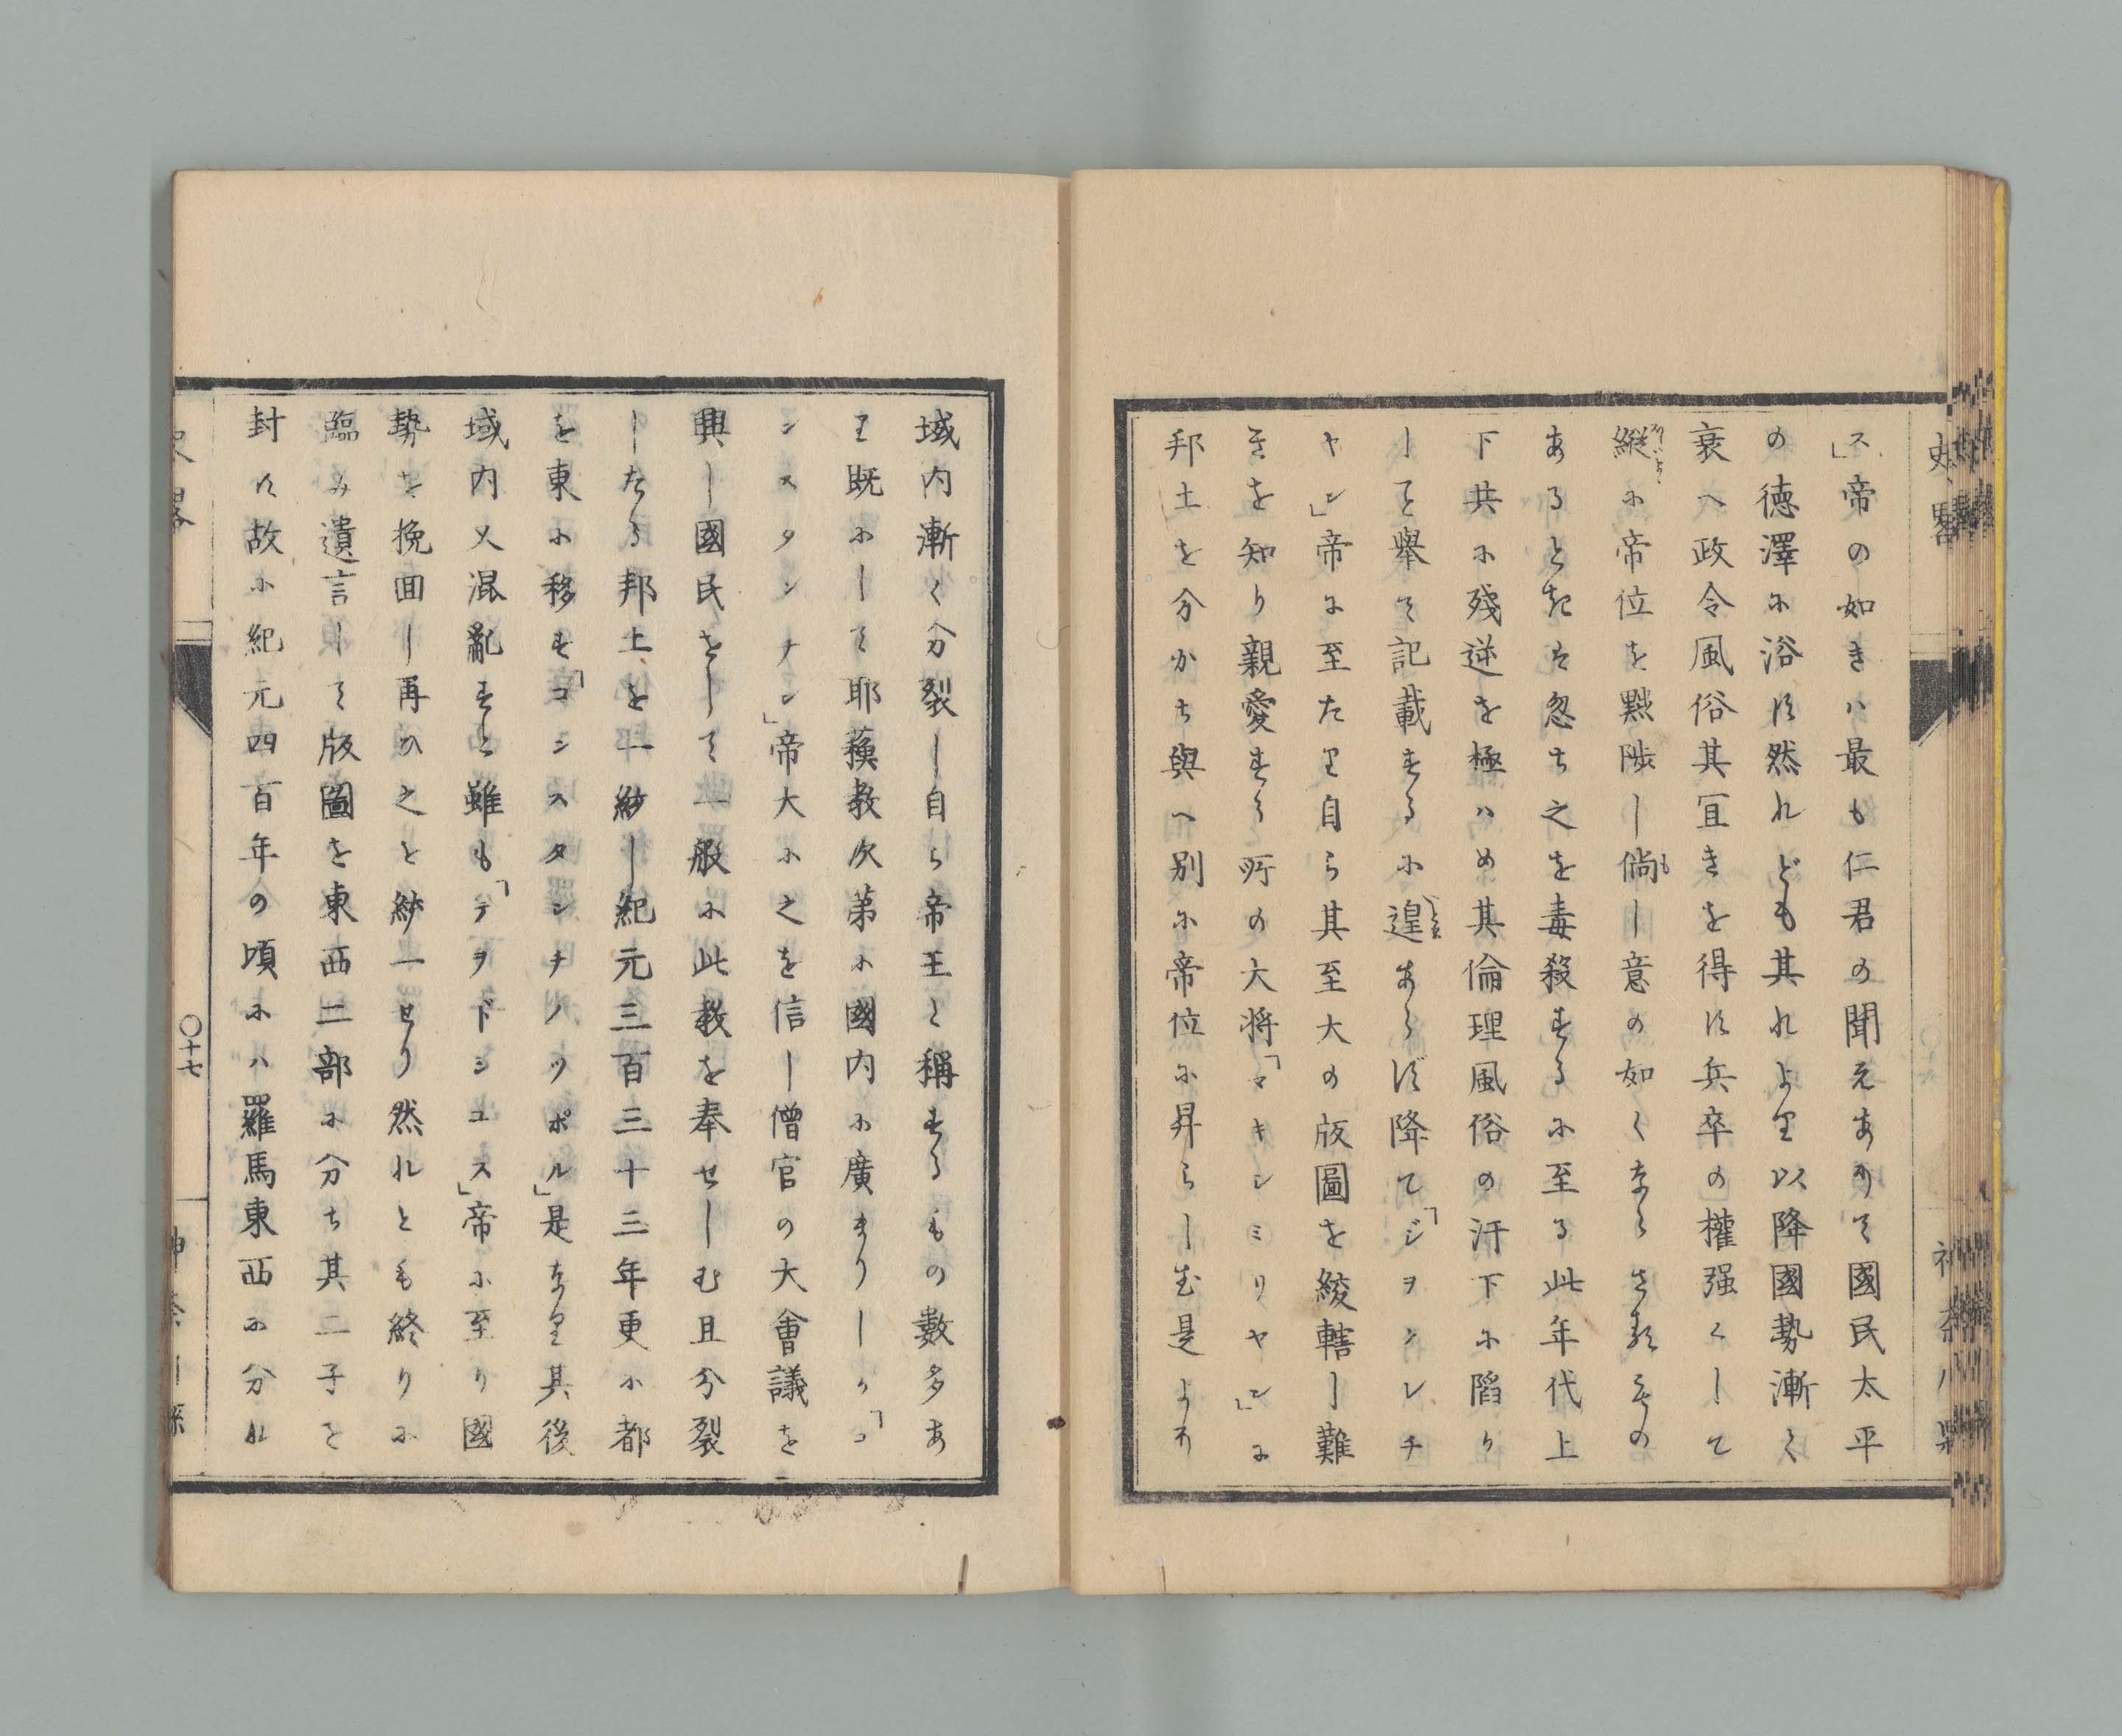 史略
神奈川県
ス」帝の如きハ最も仁君の聞えありて國民太平
の徳澤に浴す然れども其れより以降國勢漸く
衰へ政令風俗其宜きを得す兵卒の權强くして
縦に帝位を黜陟し倘し意の如くならさるもの
あるときは忽ち之を毒殺するに至る此年代上
下共に殘逆を極ハめ其倫理風俗の汙下に陷り
しを舉て記載するに遑あらず降て「ジヲンレチ
ヤン」帝に至たり自ら其至大の版圖を綾轄し難
きを知り親愛する所の大将「マキシミリヤン」に
邦土を分かち與へ別に帝位に昇らしむ是より
域内漸く分裂し自ら帝王と稱するもの數多あ
り既にして耶蘓教次第に國内に廣まりしか「コ
ンスタンチン」帝大に之を信し僧官の大會議を
興し國民をして一般に此教を奉せしむ且分裂
したる邦土を一紗し紀元三百三十三年更に都
を東に移す「コンスタンチノツポル」是なり其後
域内又混亂すと雖も「テヲドシユス」帝に至り國
勢を挽回し再ひ之を紗一せり然れとも終りに
臨み遺言して版圖を東西二部に分ち其二子を
封す故に紀元四百年の頃にハ羅馬東西に分れ
史略
〇十七
神奈川縣